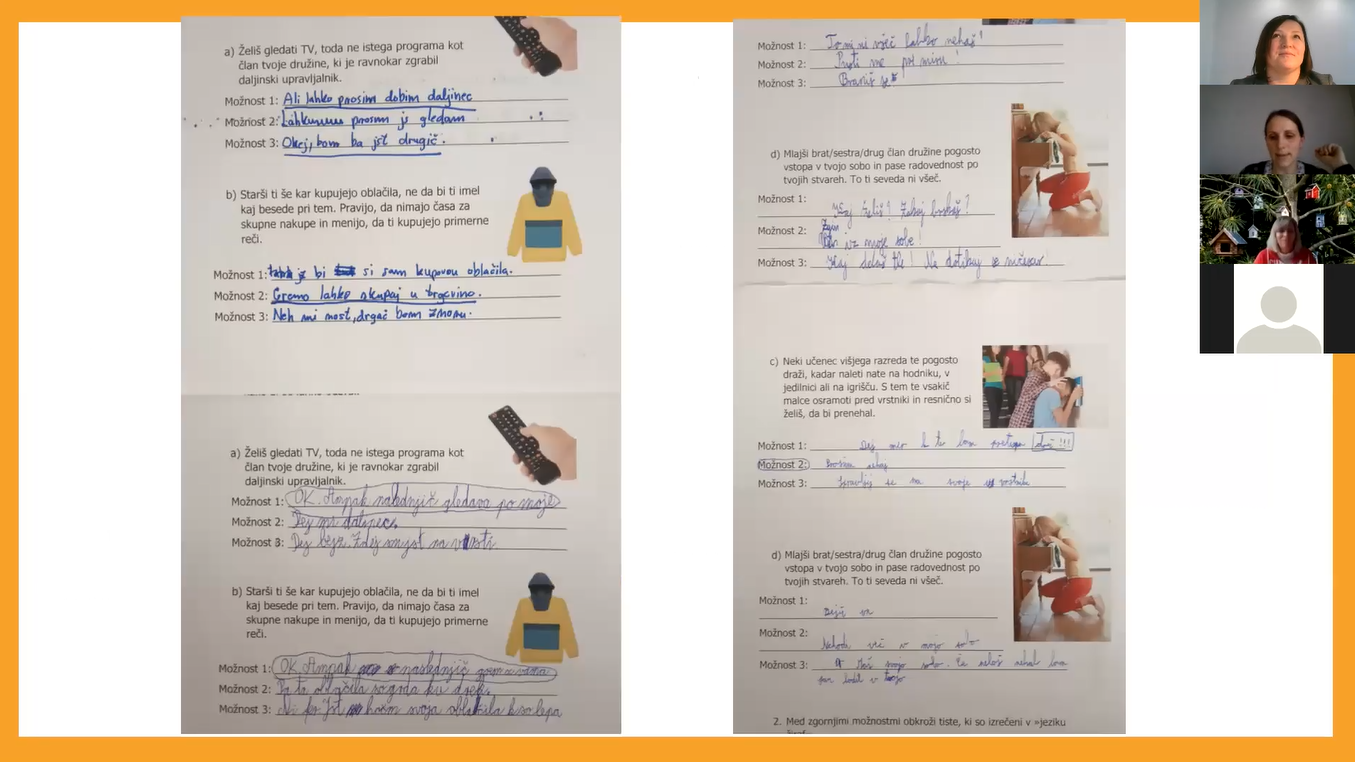 a) Želiš gledati TV, toda ne istega programa kot
član tvoje družine, ki je ravnokar zgrabil
daljinski upravljalnik.
Možnost 1: Ali lahko prosim dobim daljinec
Možnost 2: prosim js gledam
Možnost 3: Okej, bom pa jst drugič.
b) Starši ti še kar kupujejo oblačila, ne da bi ti imel
kaj besede pri tem. Pravijo, da nimajo časa za
skupne nakupe in menijo, da ti kupujejo primerne
reči.
Možnost 1: bi si sam kupovou oblačila.
Možnost 2: Gremo lahko skupaj u trgovino.
Možnost 3: Neh mi nost, drgač bom
a) Želiš gledati TV, toda ne istega programa kot
član tvoje družine, ki je ravnokar zgrabil
daljinski upravljalnik.
Možnost 1: OK. Ampak naslednjič gledava po moje
Možnost 2: Dej mi dalinec.
Možnost 3: Dej bejž. Zdej jst na vrsti
b) Starši ti še kar kupujejo oblačila, ne da bi ti imel
kaj besede pri tem. Pravijo, da nimajo časa za
skupne nakupe in menijo, da ti kupujejo primerne
reči.
Možnost 1: OK. Ampak naslednjič
Možnost 2: Ta oblačila so grda
Možnost 3: Jst hočem svoja oblačila k so lepa
Možnost 1: To mi ni všeč lahko nehaš!
Možnost 2: Pusti me pri miru!
Možnost 3: Braniš se
d) Mlajši brat/sestra/drug član družine pogosto
vstopa v tvojo sobo in pase radovednost po
tvojih stvareh. To ti seveda ni všeč.
Možnost 1: Kaj želiš? Zakaj brskaš?
Možnost 2: iz moje sobe!
Možnost 3: Kaj delaš tle! Ne dotikaj se
c) Neki učenec višjega razreda te pogosto
draži, kadar naleti nate na hodniku, v
jedilnici ali na igrišču. S tem te vsakič
malce osramoti pred vrstniki in resnično si
želiš, da bi prenehal.
Možnost 1: Dej mir k te bom
Možnost 2: Prosim nehaj
Možnost 3: Spravljaj se na svoje vrstnike
d) Mlajši brat/sestra/drug član družine pogosto
vstopa v tvojo sobo in pase radovednost po
tvojih stvareh. To ti seveda ni všeč.
Možnost 1: Dejži
Možnost 2: Nehodi več v mojo sobo
Možnost 3: maš svojo sobo. Če neboš nehal bom
hodil v tvojo
2. Med zgornjimi možnostmi obkroži tiste, ki so izrečeni v »jeziku